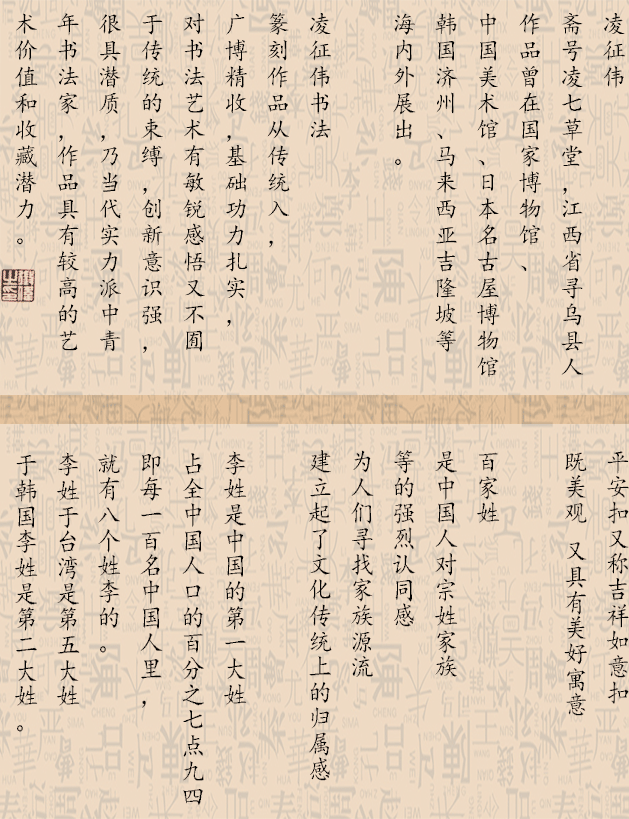 凌征伟
斋号凌七草堂，江西省寻乌县人
作品曾在国家博物馆、
中国美术馆、日本名古屋博物馆
韩国济州、马来西亚吉隆坡等
海内外展出。
凌征伟书法
篆刻作品从传统入，
广博精收，基础功力扎实，
对书法艺术有敏锐感悟又不囿
于传统的束缚，创新意识强，
很具潜质，乃当代实力派中青
年书法家，作品具有较高的艺
术价值和收藏潜力。
平安扣又称吉祥如意扣
既美观 又具有美好寓意
百家姓
是中国人对宗姓家族
等的强烈认同感
为人们寻找家族源流
建立起了文化传统上的归属感
李姓是中国的第一大姓
占全中国人口的百分之七点九四
即每一百名中国人里，
就有八个姓李的。
李姓于台湾是第五大姓
于韩国李姓是第二大姓。